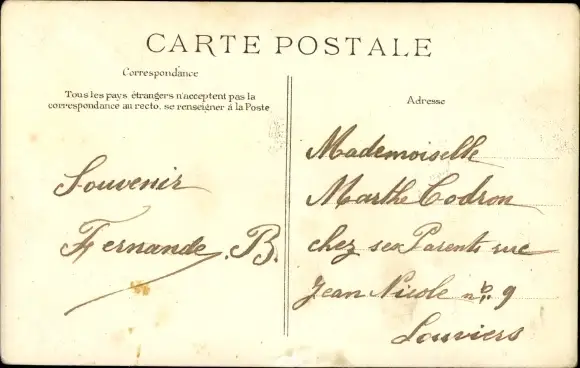 CARTE POSTALE
Correspondance
Tous les pays étrangers n'acceptent pas la
correspondance au recto, se renseigner à la Poste
Souvenir
Fernande. B.
Adresse
Mademoiselle
Marthe Codron
chez ses Parents rue
Jean Nicole no. 9
Louviers